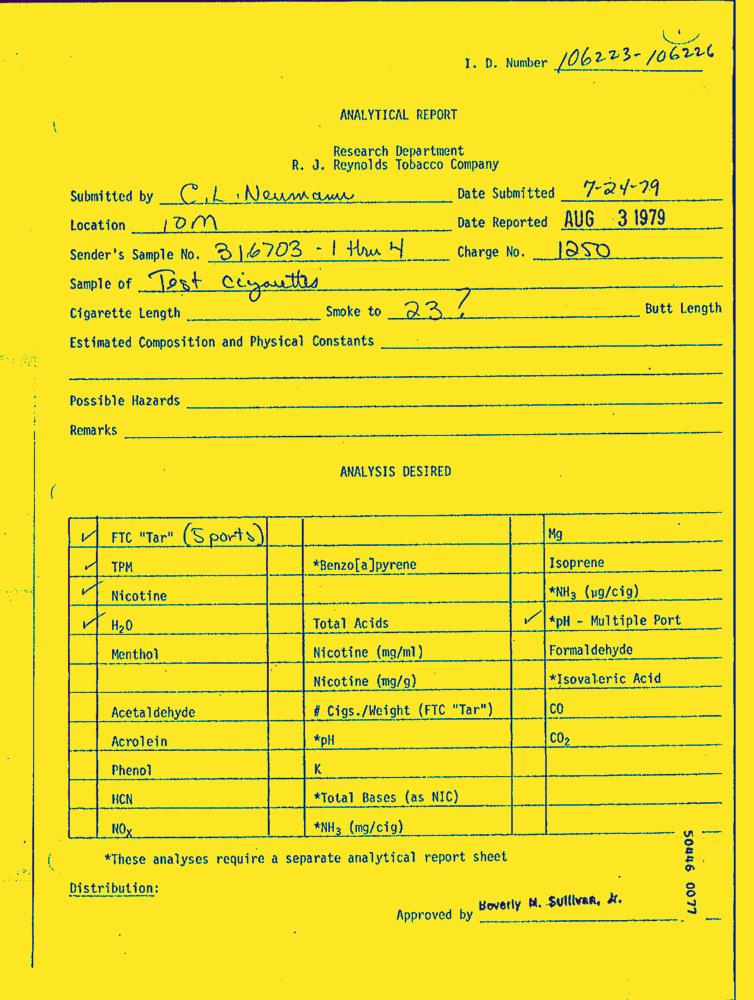 I. D. Number 106223-106226
ANALYTICAL REPORT
Research Department
R. J. Reynolds Tobacco Company
Submitted by C.L. Neumann Date Submitted 7-24-79
Location 10M Date Reported AUG 3 1979
Sender's Sample No. 316703 - 1 thru 4 Charge No. 1250
Sample of Test cigarettes
Cigarette Length Smoke to 23? Butt Length
Estimated Composition and Physical Constants
Possible Hazards
Remarks
ANALYSIS DESIRED
✓ FTC "Tar" (5 ports) Mg
✓ TPM *Benzo[a]pyrene Isoprene
✓ Nicotine *NH3 (µg/cig)
✓ H2O Total Acids ✓ *pH - Multiple Port
Menthol Nicotine (mg/ml) Formaldehyde
Nicotine (mg/g) *Isovaleric Acid
Acetaldehyde # Cigs./Weight (FTC "Tar") CO
Acrolein *pH CO2
Phenol K
HCN *Total Bases (as NIC)
NOx *NH3 (mg/cig)
*These analyses require a separate analytical report sheet
Distribution:
Approved by Beverly M. Sullivan, Jr.
50446 0077